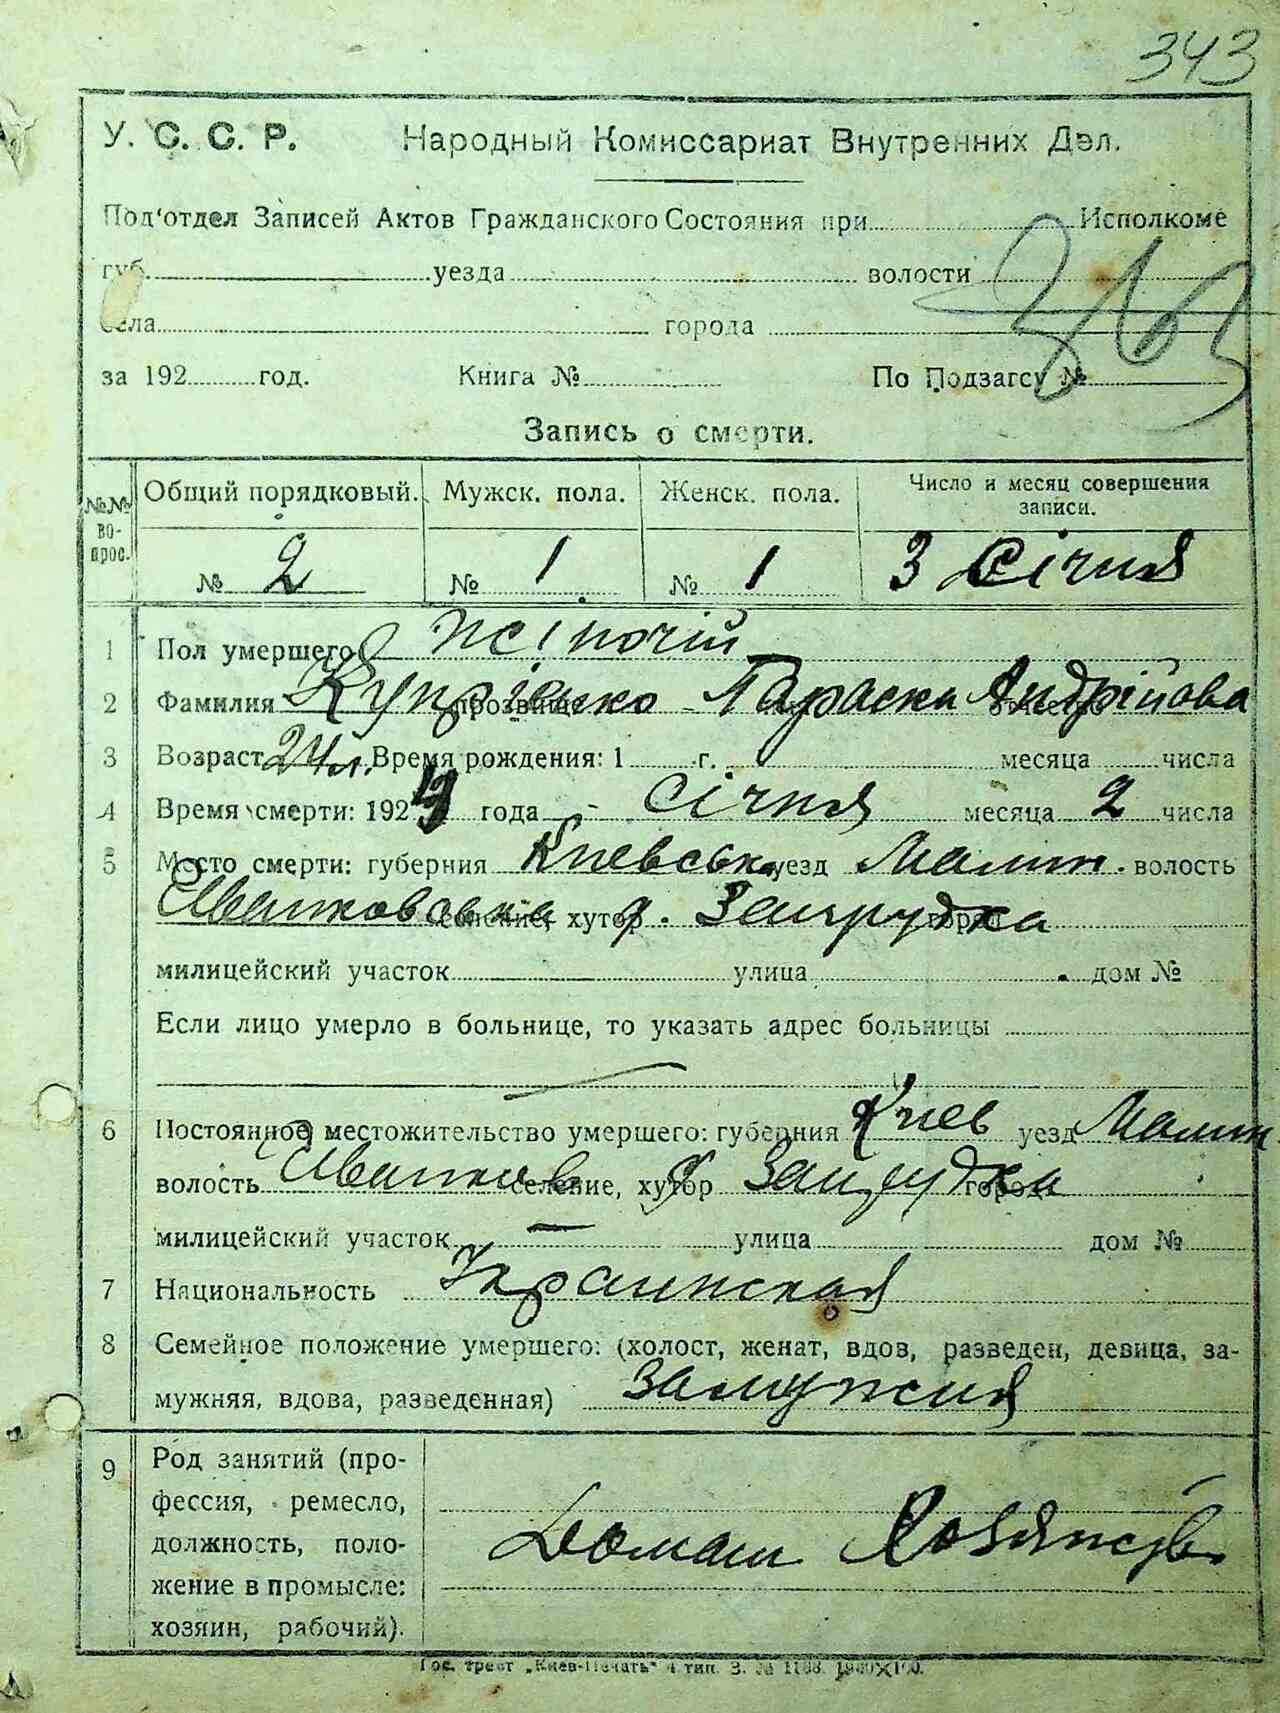 343
У. С. С. Р. Народный Комиссариат Внутренних Дел.
Под'отдел Записей Актов Гражданского Состояния при Исполкоме
губ. уезда волости
села города
за 192 год. Книга № По Подзагсу №
Запись о смерти.
№№ вопрос. Общий порядковый. Мужск. пола. Женск. пола. Число и месяц совершения записи.
№ 2 № 1 № 1 3 Січня
1 Пол умершего жіночій
2 Фамилия Купрієнко прозвище Параска Андрійова
3 Возраст 24 л. Время рождения: 1 г. месяца числа
4 Время смерти: 192 года Січня месяца 2 числа
5 Место смерти: губерния Киевськ. уезд Малин. волость
Іванковська селение, хутор д. Занрудка город
милицейский участок улица дом №
Если лицо умерло в больнице, то указать адрес больницы
6 Постоянное местожительство умершего: губерния Киев уезд Малин
волость Іванков селение, хутор д Занрудка город
милицейский участок улица дом №
7 Национальность Украинская
8 Семейное положение умершего: (холост, женат, вдов, разведен, девица, за-
мужняя, вдова, разведенная) замужня
9 Род занятий (про-
фессия, ремесло,
должность, поло-
жение в промысле:
хозяин, рабочий).
Домаш
Гос. трест „Киев-Печать" 4 тип. З. № 1188.